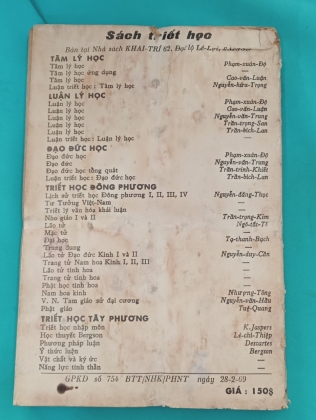 Sách triết học
Bán tại Nhà sách KHAI-TRÍ 62, Đại lộ Lê-Lợi,
TÂM LÝ HỌC
Tâm lý học Phạm-xuân-Độ
Tâm lý học ứng dụng —
Tâm lý học Cao-văn-Luận
Luận triết học : Tâm lý học Nguyễn-hữu-Trọng
LUẬN LÝ HỌC
Luận lý học Phạm-xuân-Độ
Luận lý học Cao-văn-Luận
Luận lý học Nguyễn-văn-Trung
Luận lý học Trần-trọng-San
Luận lý học Trần-bích-Lan
Luận triết học : Luận lý học —
ĐẠO ĐỨC HỌC
Đạo đức học Phạm-xuân-Độ
Đạo đức Nguyễn-văn-Trung
Đạo đức học tổng quát Trần-trinh-Khiết
Luận triết học : Đạo đức học Trần-bích-Lan
TRIẾT HỌC ĐÔNG PHƯƠNG
Lịch sử triết học Đông phương I, II, III, IV Nguyễn-đăng-Thục
Tư Tưởng Việt-Nam —
Triết lý văn hóa khái luận —
Nho giáo I và II Trần-trọng-Kim
Lão tử Ngô-tất-Tố
Mặc tử —
Đại học Tạ-thanh-Bạch
Trung dung —
Lão tử Đạo đức Kinh I và II Nguyễn-duy-Cần
Trang tử Nam hoa Kinh I, II, III —
Lão tử tinh hoa —
Trang tử tinh hoa —
Phật học tinh hoa —
Nam hoa kinh Nhượng-Tống
V. N. Tam giáo sử đại cương Nguyễn-văn-Hầu
Phật giáo Tuệ-Quang
TRIẾT HỌC TÂY PHƯƠNG
Triết học nhập môn K.Jaspers
Học thuyết Bergson Lê-chí-Thiệp
Phương pháp luận Descartes
Ý thức luận Bergson
Vật chất và ký ức —
Năng lực tinh thần —
GPKD số 754 BTT/NHK/PHNT ngày 28-2-69
GIÁ : 150$